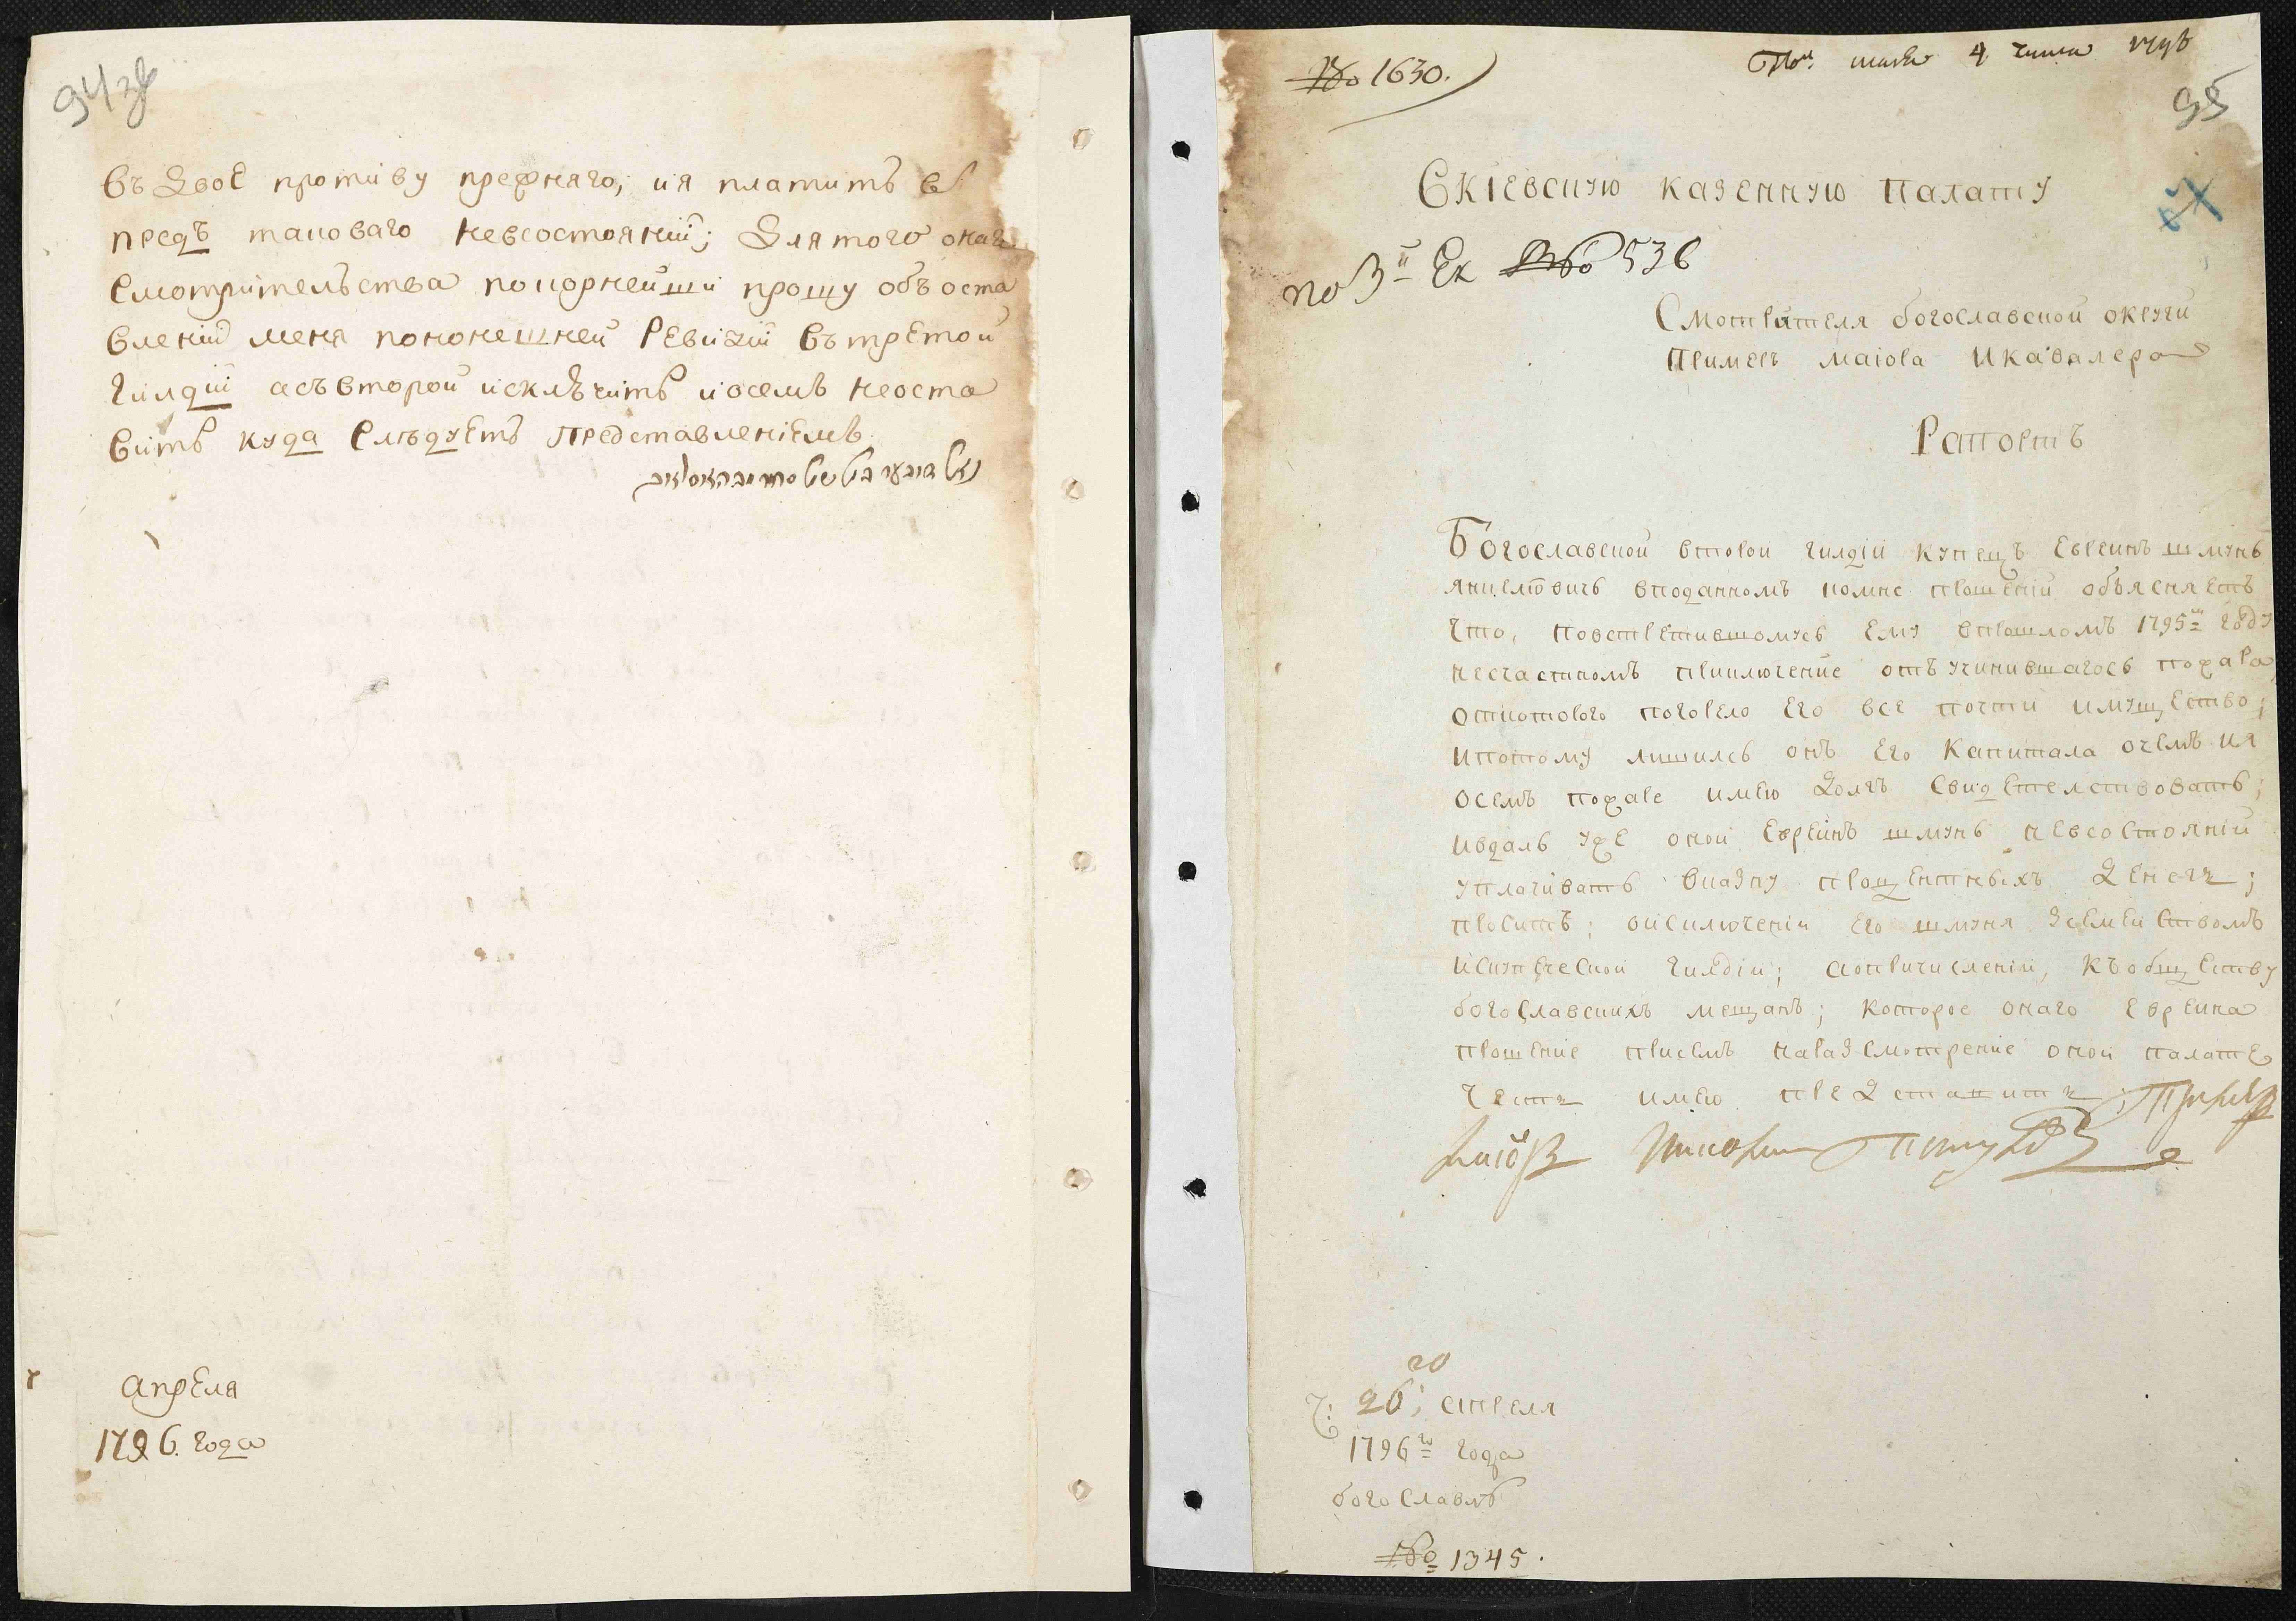 94 зв
въ двое противу прежняго, и я платить в
предъ таковаго невсостояніи; Для того онаго
Смотрительства покорнейши прошу объ оста
вленіи меня пононешней Ревизіи въ третой
гилдіи а съ второй исключить и о семъ неоста
вить куда Слѣдуетъ Представленіемъ
Апреля
1796. года
№ 1630.
маія 4 числа 1796
95
В Кіевскую казенную палату
по 3й Ек № 536
Смотрителя богославской округи
Примеръ маіора и кавалера
Рапортъ
Богославской второй гилдіи купецъ Евреинъ шмунь
янкелювичь вподанномъ комне прошеніи объясняетъ
что, повстретившомусь Ему впрошломъ 1795м году
несчастномъ приключение отъ учинившагось пожара,
откоторого погорело Его все почти имущество;
и потому лишилсь онъ Его Капитала о чемъ и я
о семъ пожаре имею Долгъ Свидетелствовать;
ивдаль уже оной Евреинъ шмунь невсостояніи
уплачивать вказну процентныхъ Денегъ;
проситъ; о исключеніи Его шмуня зсемействомъ
искупеческой гилдіи; а опричисленіи, къ обществу
богославскихъ мещанъ; которое онаго Евреина
прошение присемъ наразсмотрение оной палате
честь имею представить Примеръ
маіоръ
ч: 26; апреля
20
1796го года
богославль
№ 1345.